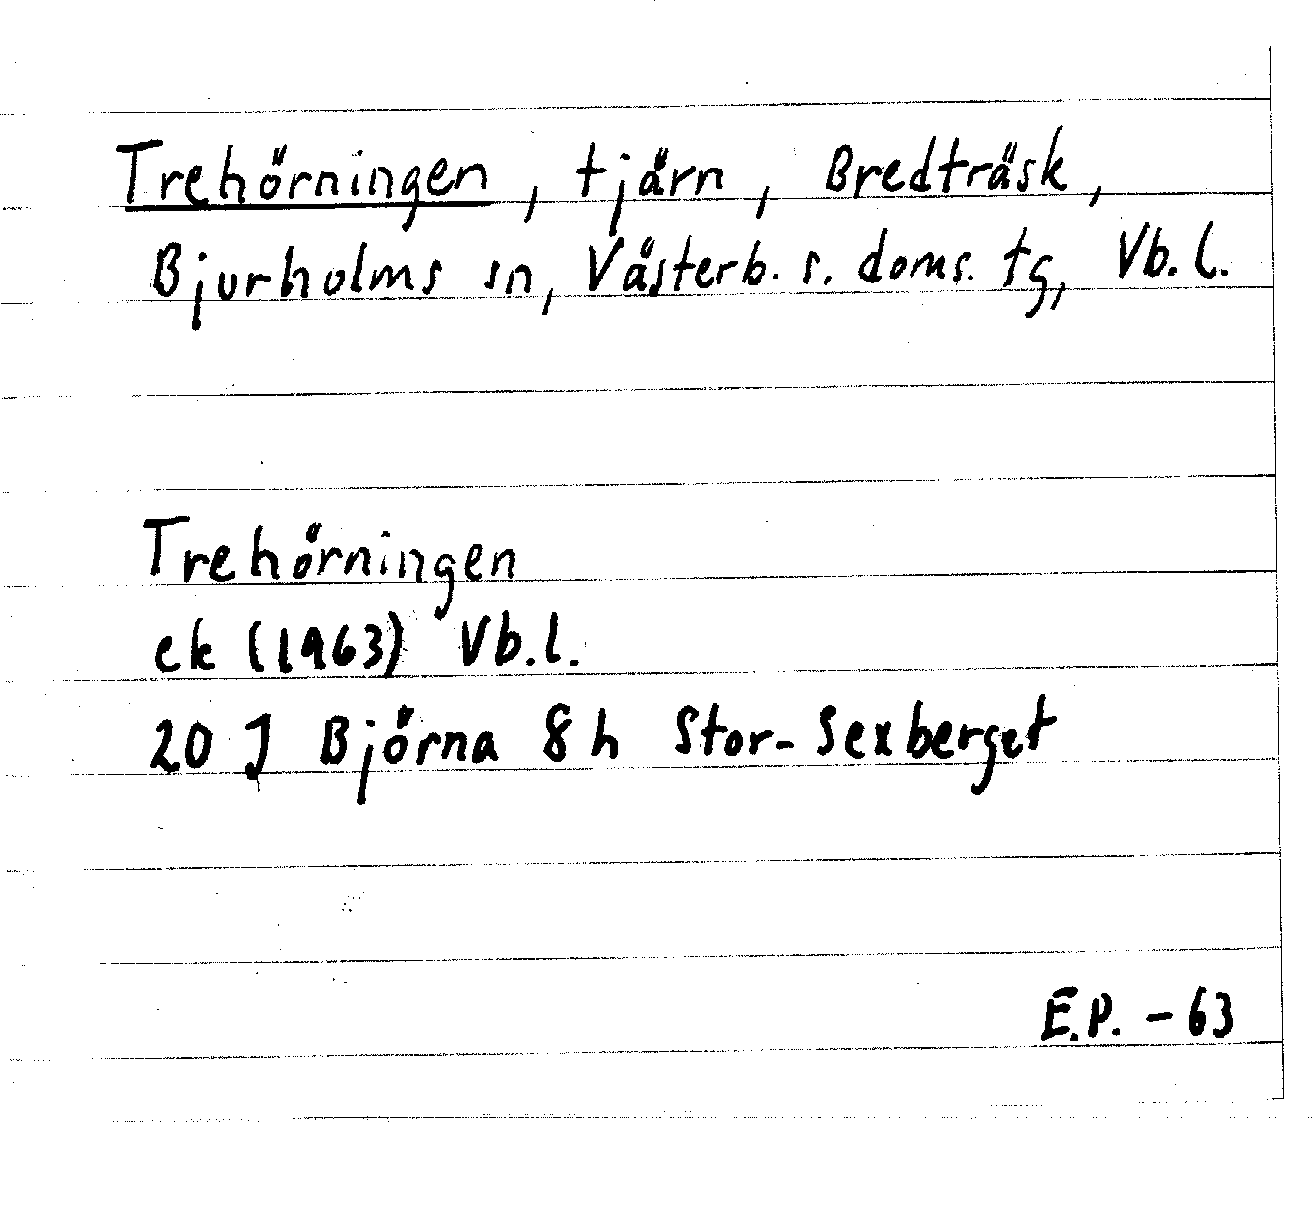 Trehörningen, tjärn, Bredträsk,
Bjurholms sn, Västerb. s. doms. tg, Vb. l.
Trehörningen
ek (1963) Vb.l.
20 J Björna 8h Stor-Sexberget
E.P. - 63